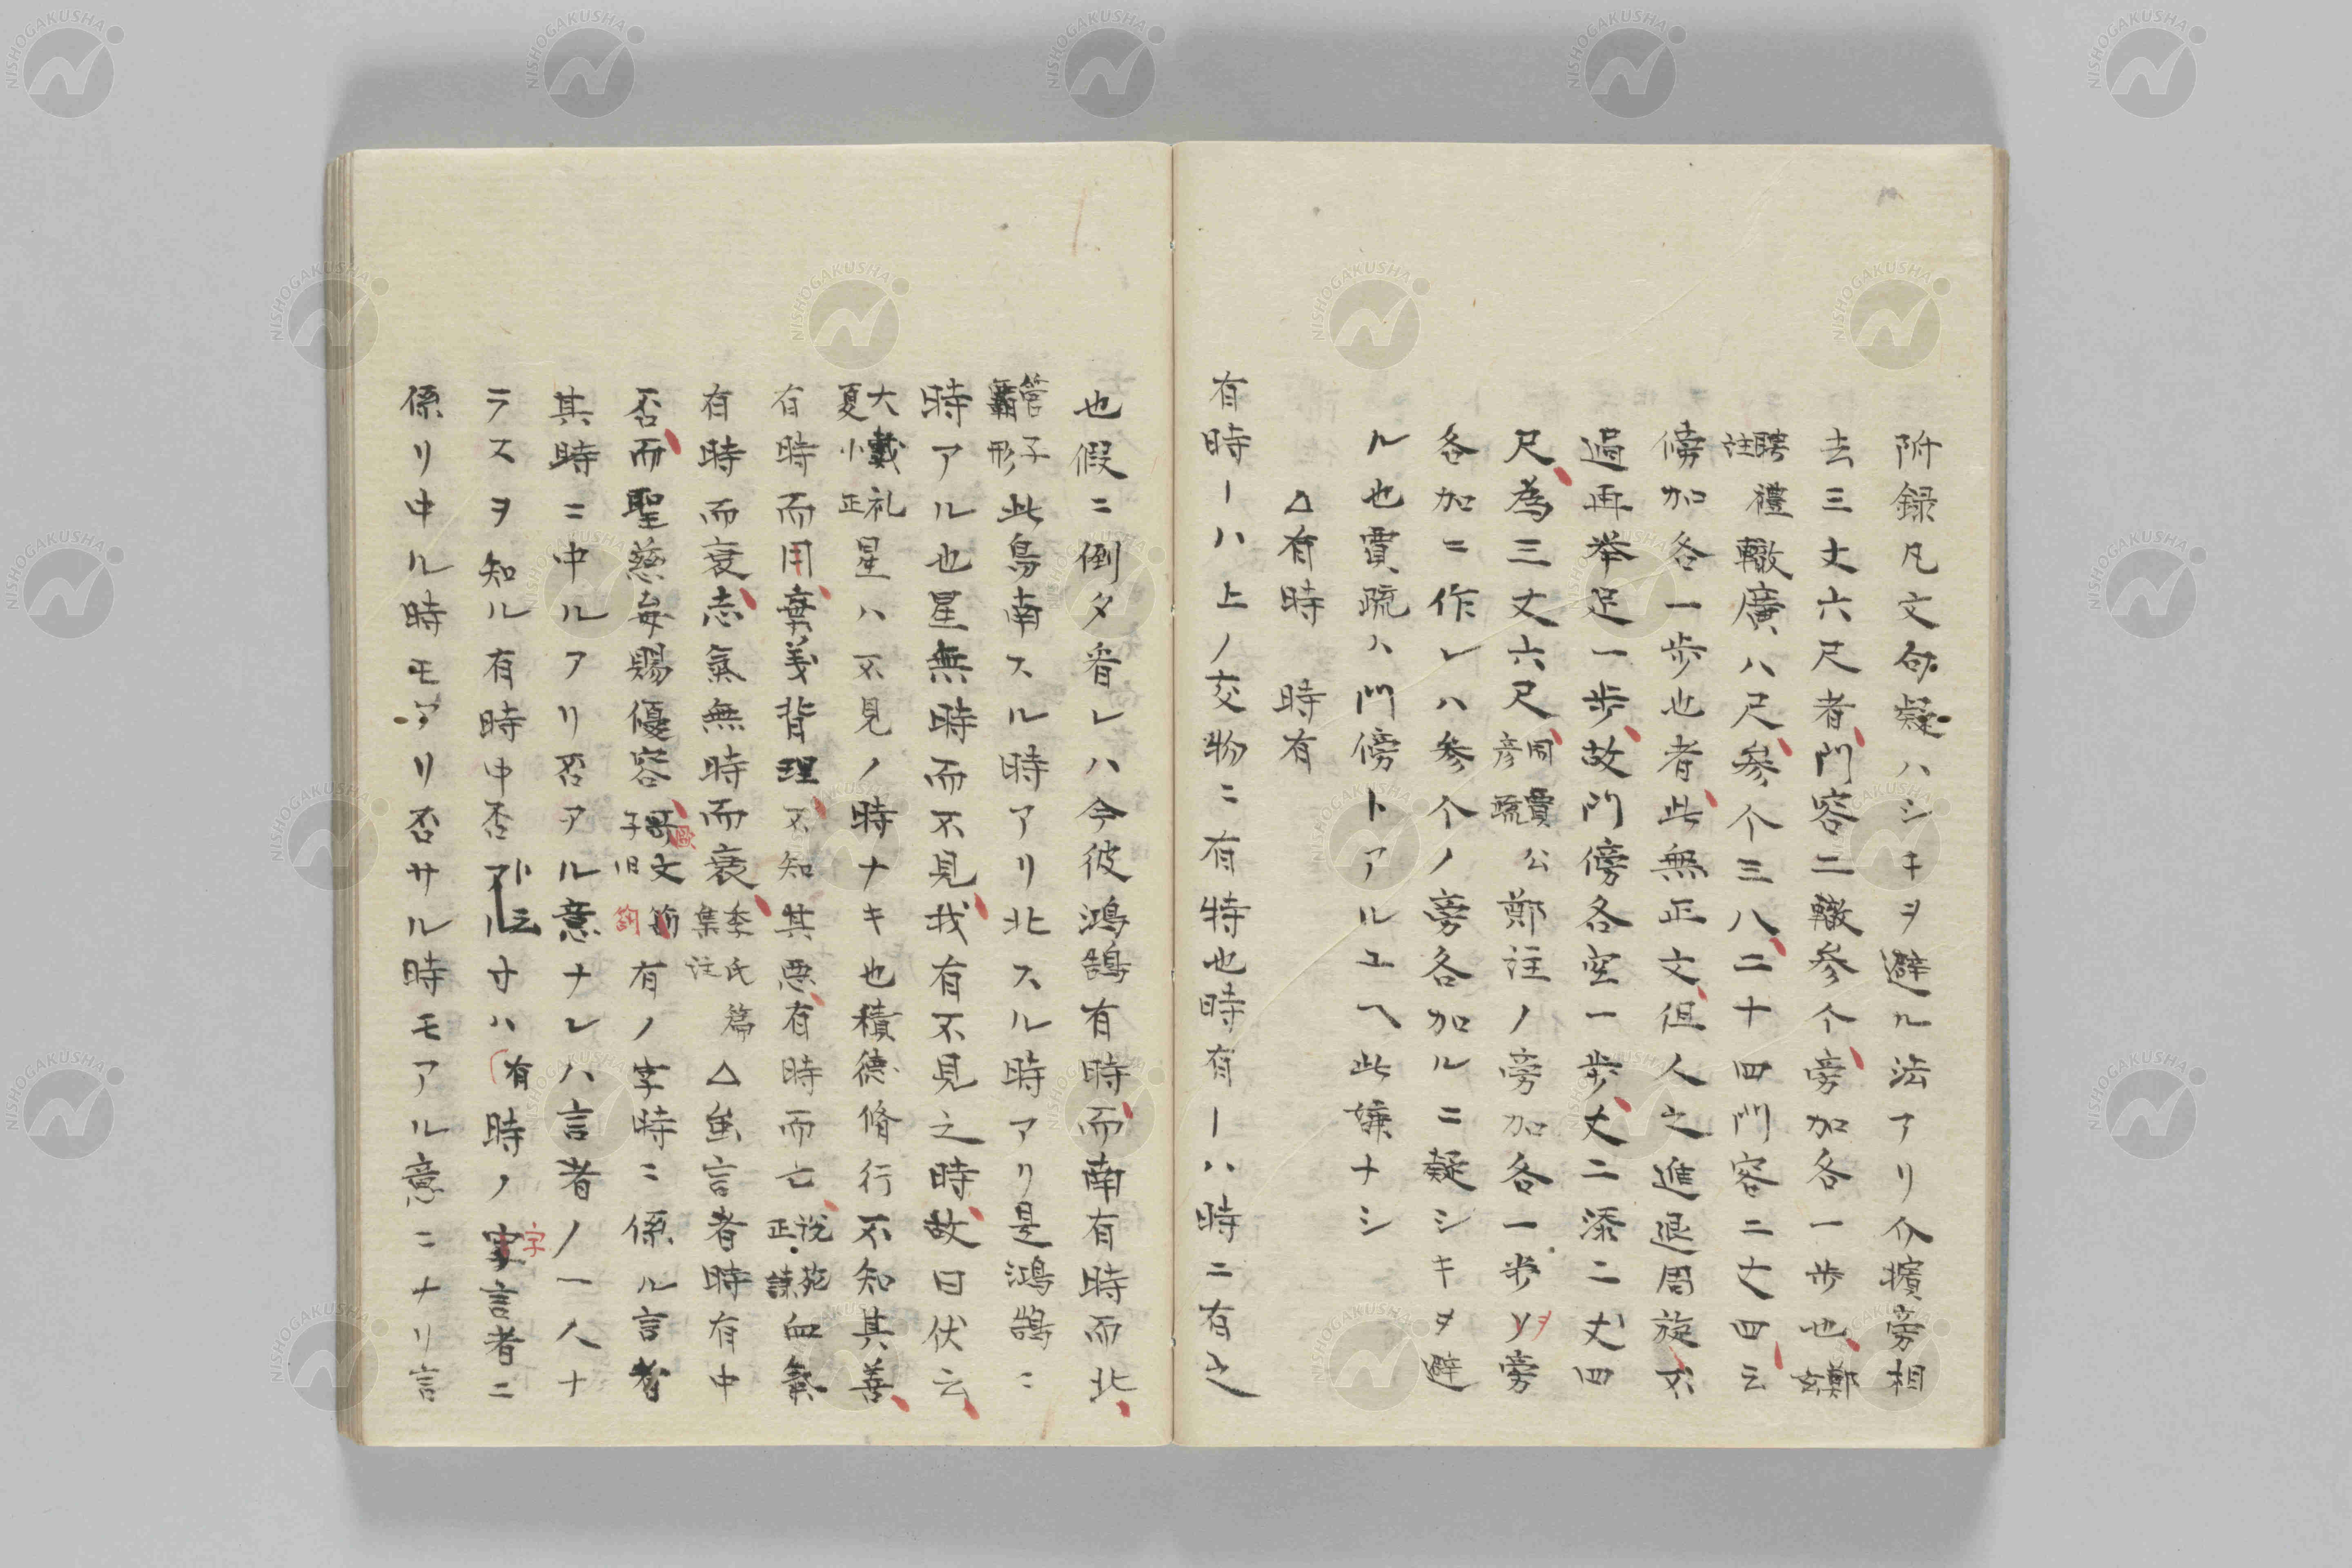 附録凡文句疑ハシキヲ避ル法アリ介擯旁相
去三丈六尺者門容二轍参个旁加各一歩也鄭玄
聘禮註轍廣八尺參个三八二十四門容二丈四云
傍加各一歩也者此無正文但人之進退周旋不
過再挙足一歩故門傍各空一歩丈二添二丈四
尺為三丈六尺同賈公彦疏鄭注ノ旁加各一歩ヲ旁
各加ニ作レハ参个ノ旁各加ルニ疑シキヲ避
ル也賈疏ハ門傍トアルユヘ此嫌ナシ
△有時 時有
有時ーハ上ノ交物ニ有特也時有ーハ時ニ有之
也假ニ倒タ者レハ今彼鴻鵠有時而南有時而北
管子霸形此鳥南スル時アリ北スル時アリ是鴻鵠ニ
時アル也星無時而不見我有不見之時故曰伏云
大戴礼夏小正星ハ不見ノ時ナキ也積德脩行不知其善
有時而用棄義背理不知其悪有時而亡説苑正諌血氣
有時而衰志氣無時而衰季氏篇集註△虽言者時有中
否而聖慈毎賜優容歐文子旧有ノ字時ニ係ル言者
其時ニ中ルアリ否タル意ナレハ言者ノ一人ナ
ラスヲ知ル有時中否ト云寸ハ有時ノ字言者ニ
係リ中ル時モアリ否サル時モアル意ニナリ言
NISHOGAKUSHA